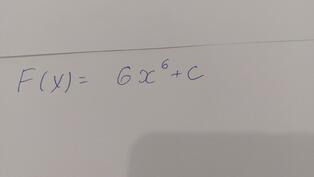 F(x) = 6x⁶ + C